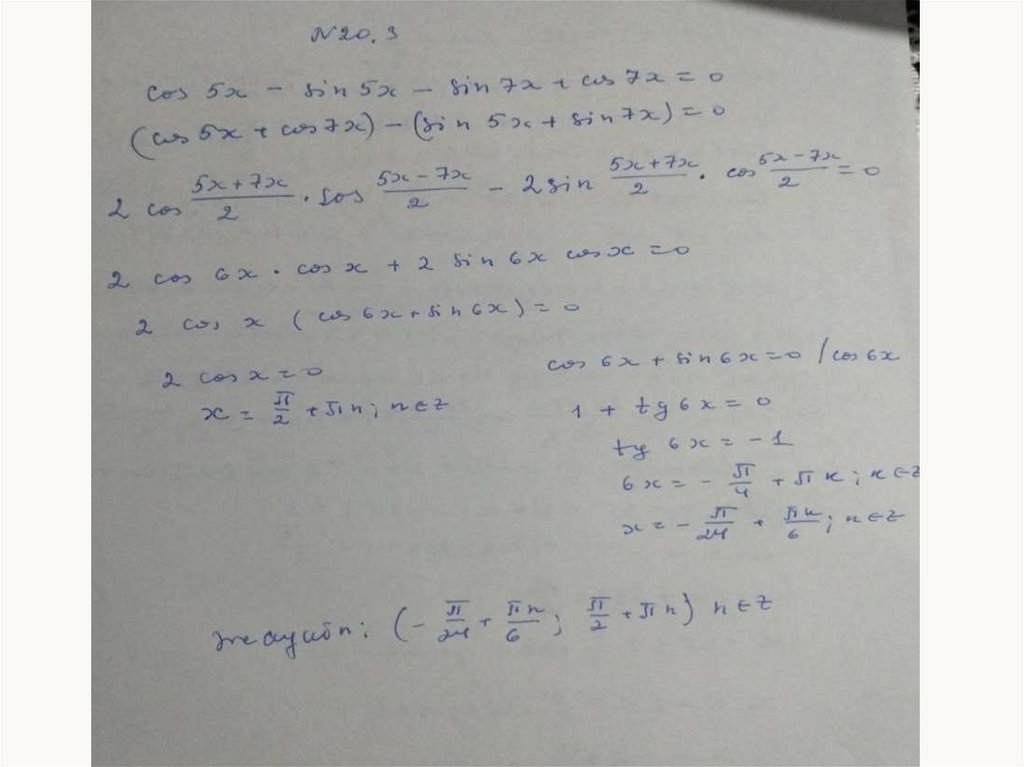 N20.3
cos 5x - sin 5x - sin 7x + cos 7x = 0
(cos 5x + cos 7x) - (sin 5x + sin 7x) = 0
2 cos (5x + 7x)/2 · cos (5x - 7x)/2 - 2 sin (5x + 7x)/2 · cos (5x - 7x)/2 = 0
2 cos 6x · cos x + 2 sin 6x cos x = 0
2 cos x (cos 6x + sin 6x) = 0
2 cos x = 0
x = π/2 + πn; n ∈ Z
cos 6x + sin 6x = 0 / cos 6x
1 + tg 6x = 0
tg 6x = -1
6x = - π/4 + πk; k ∈ Z
x = - π/24 + πk/6; n ∈ Z
(- π/24 + πn/6; π/2 + πn) n ∈ Z